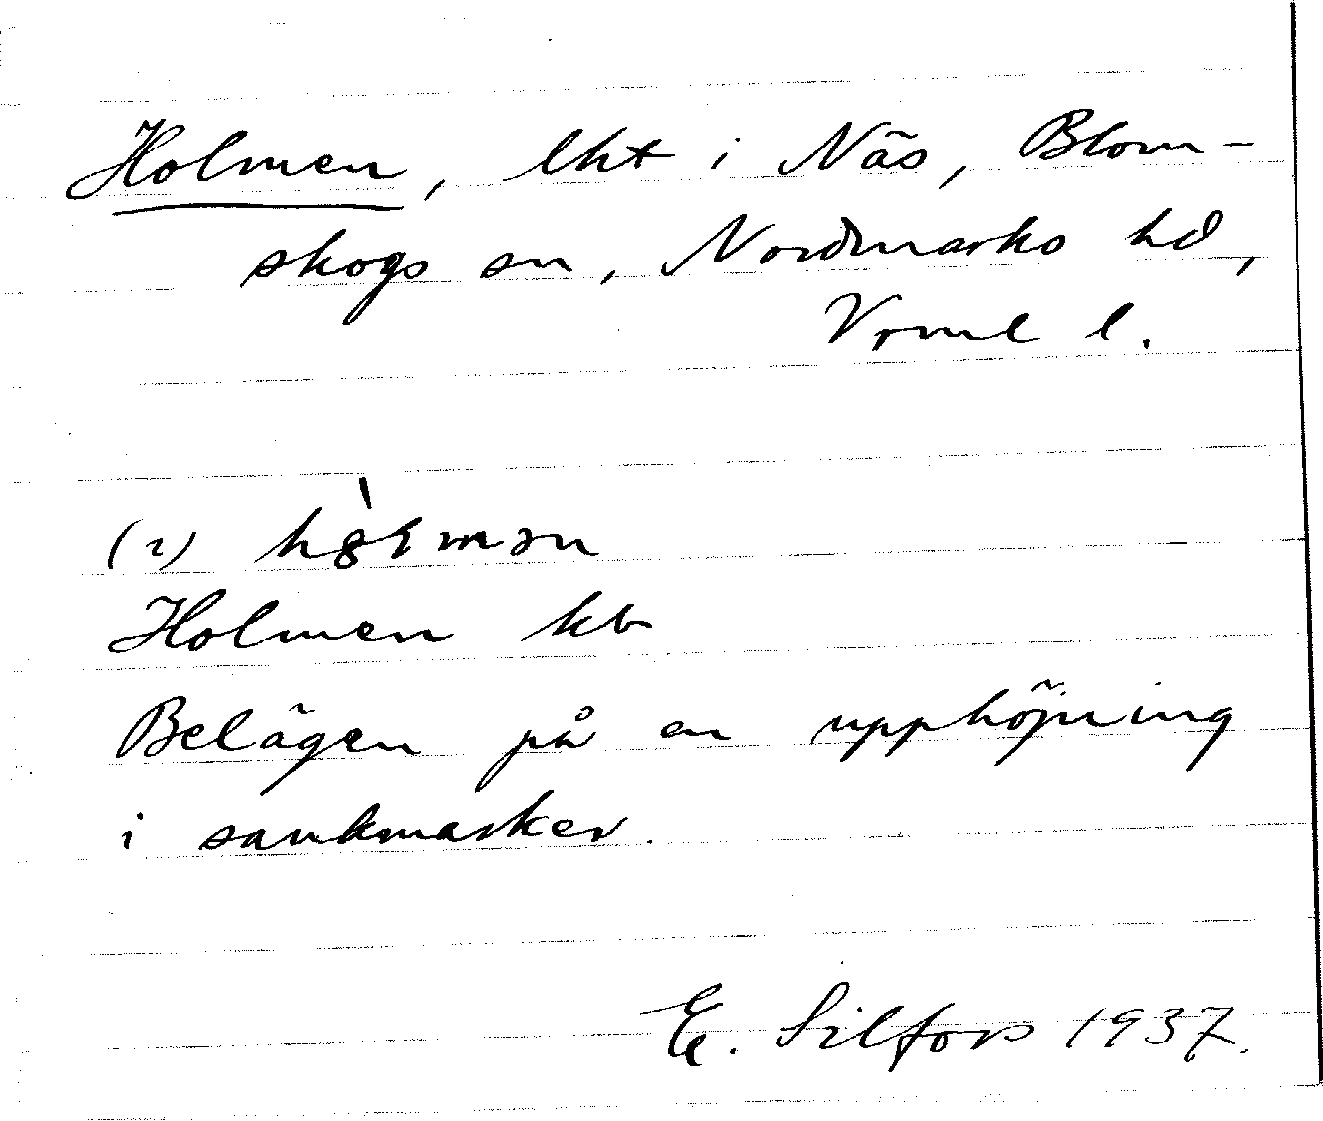 Holmen, lht i Näs, Blom-
skogs sn, Nordmarks hd,
Vrml l.
(2)
Holmen kb
Belägen på en upphöjning
i sankmarker.
E. Silfors 1937.